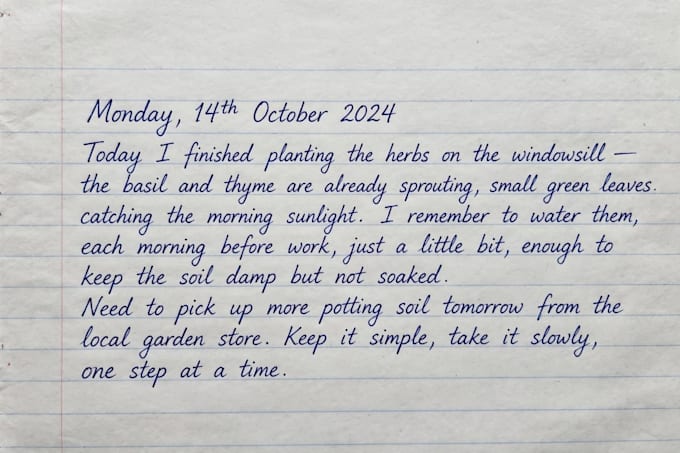 Monday, 14th October 2024
Today I finished planting the herbs on the windowsill —
the basil and thyme are already sprouting, small green leaves.
catching the morning sunlight. I remember to water them,
each morning before work, just a little bit, enough to
keep the soil damp but not soaked.
Need to pick up more potting soil tomorrow from the
local garden store. Keep it simple, take it slowly,
one step at a time.